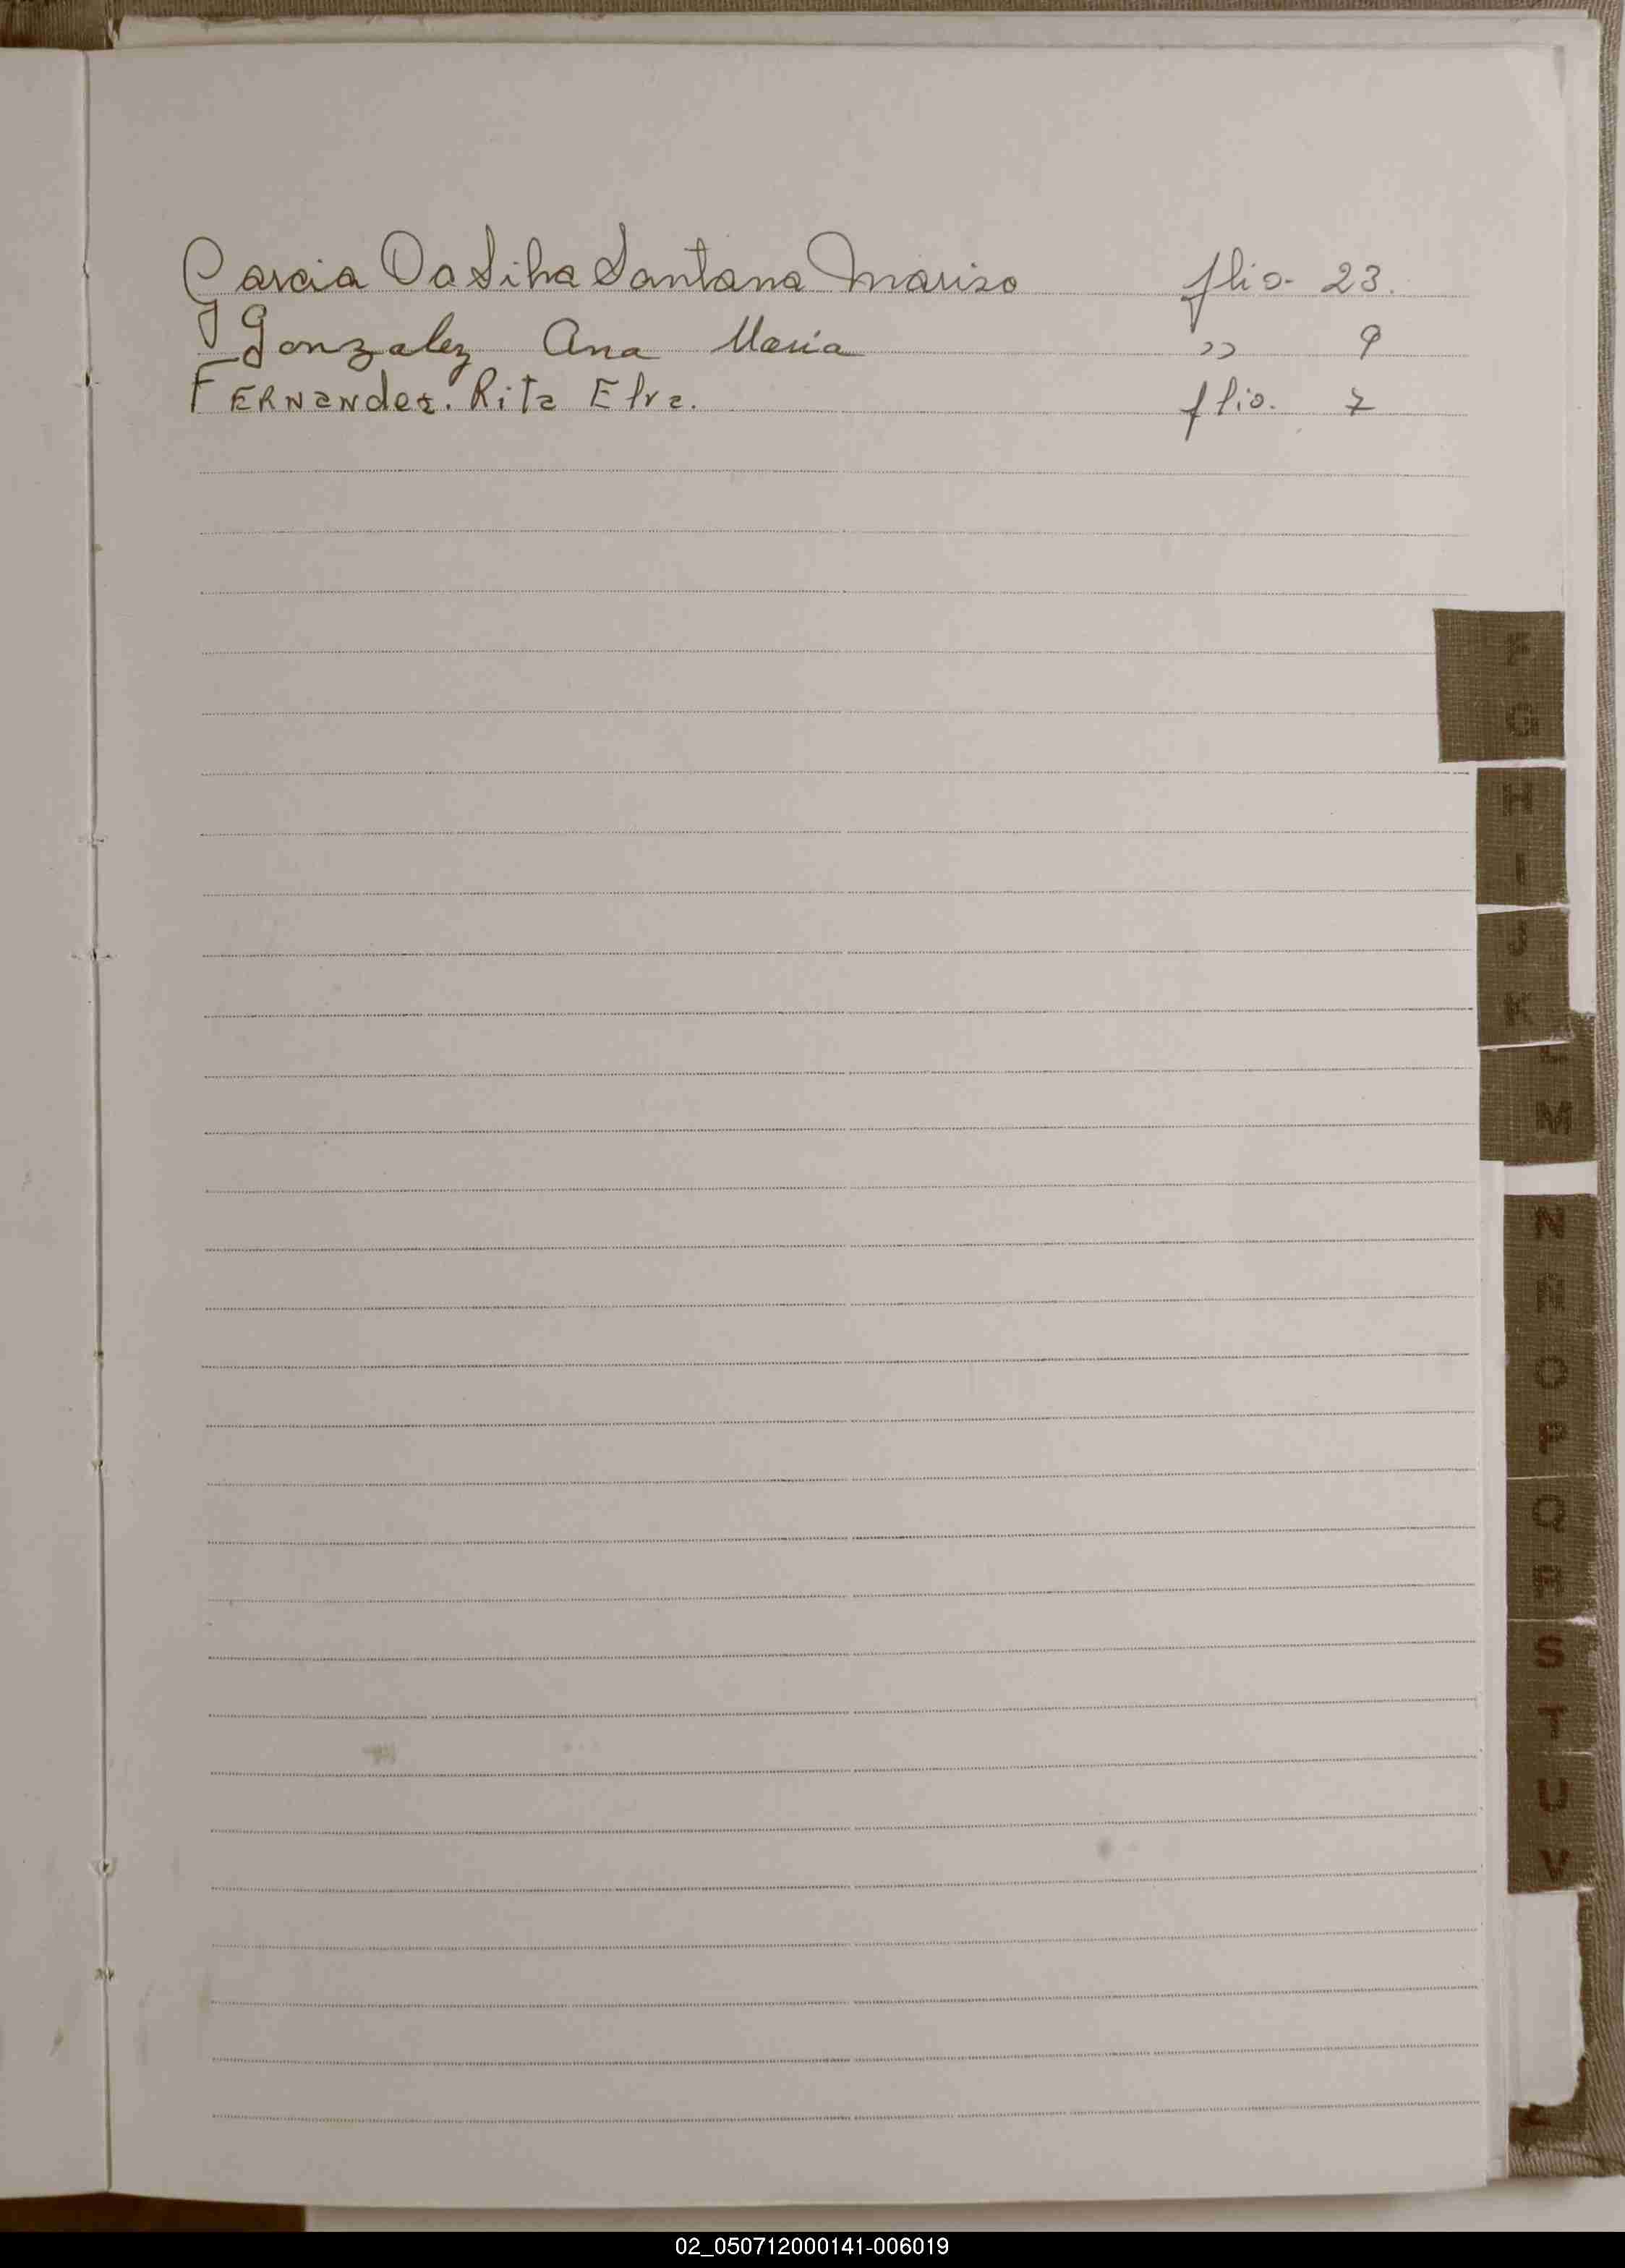 Garcia Da Silva Santana Mariso flio. 23.
Gonzalez Ana Maria " 9
FERNandez. Rita Elva. flio. 7
F
G
H
I
J
K
L
M
N
Ñ
O
P
Q
R
S
T
U
V
02_050712000141-006019